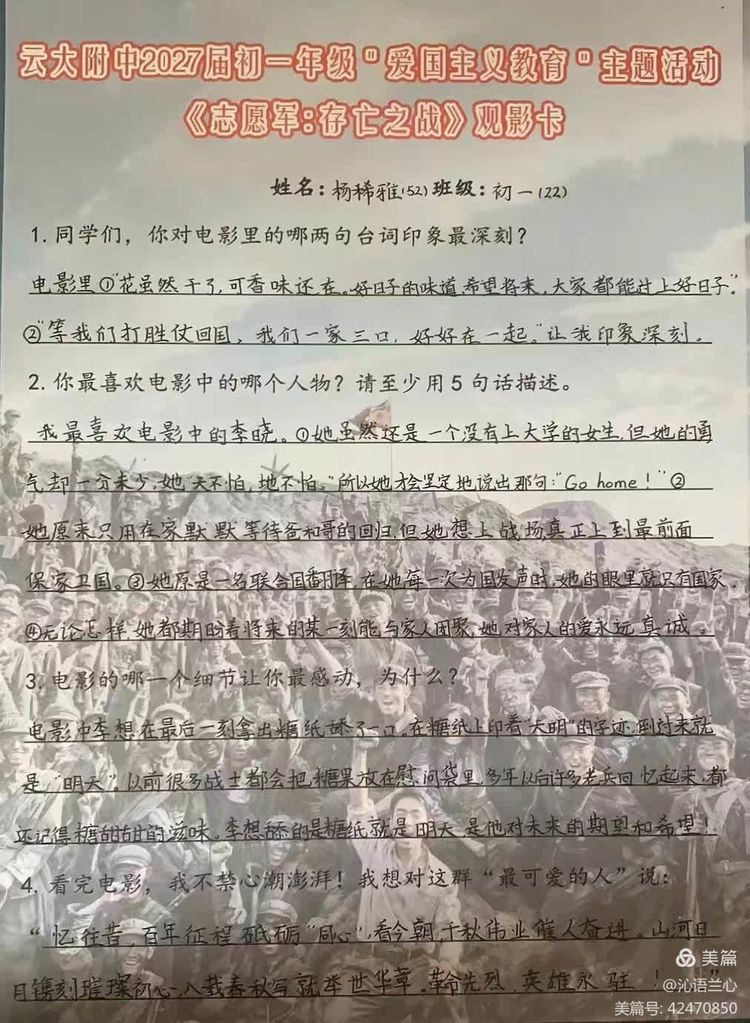 云大附中2027届初一年级"爱国主义教育"主题活动
《志愿军:存亡之战》观影卡
姓名:杨稀雅(52)班级:初一(22)
1. 同学们，你对电影里的哪两句台词印象最深刻？
电影里①"花虽然干了,可香味还在。好日子的味道,希望将来,大家都能过上好日子。"
②"等我们打胜仗回国，我们一家三口，好好在一起。"让我印象深刻。
2. 你最喜欢电影中的哪个人物？请至少用5句话描述。
我最喜欢电影中的李晓。①她虽然还是一个没有上大学的女生,但她的勇
气却一分未少,她"天不怕,地不怕。"所以她才会坚定地说出那句:"Go home!"②
她原来只用在家默默等待爸和哥的回归,但她想上战场,真正上到最前面
保家卫国。③她原是一名联合国翻译,在她每一次为国发声时,她的眼里就只有国家。
④无论怎样,她都期盼着将来的某一刻能与家人团聚,她对家人的爱永远真诚。
3. 电影的哪一个细节让你最感动，为什么？
电影中李想在最后一刻拿出糖纸,舔了一口。在糖纸上印着"天明"的字迹,倒过来就
是"明天"。以前很多战士都会把糖果放在慰问袋里,多年以后许多老兵回忆起来,都
还记得糖甜甜的滋味。李想舔的是糖纸,就是明天,是他对未来的期望和希望!
4. 看完电影，我不禁心潮澎湃！我想对这群"最可爱的人"说：
"忆往昔,百年征程砥砺"同心",看今朝,千秋伟业催人奋进。山河日
月镌刻璀璨初心,八载春秋写就举世华章。革命先烈,英雄永驻!"
美篇
@沁语兰心
美篇号: 42470850